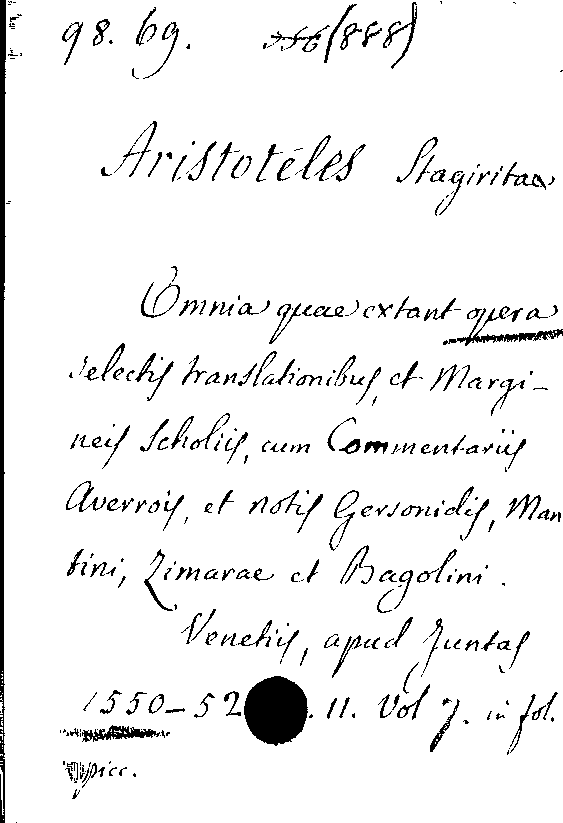 98. 69. (888)
Aristoteles Stagiritae
Omnia quae extant opera
selectis translationibus, et Margi-
neis Scholiis, cum Commentariis
Averrois, et notis Gersonidis, Man
tini, Zimarae et Bagolini.
Venetiis, apud Juntas
1550-52 . 11. Vol 7. in fol.
picc.